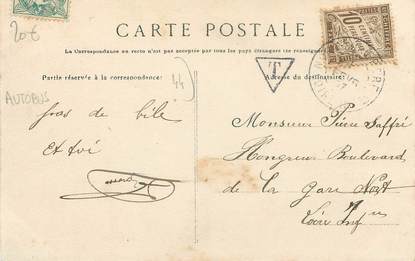 20€
CARTE POSTALE
La Correspondance au recto n'est pas acceptée par tous les pays étrangers (se renseigner
Partie réservée à la correspondance:
Adresse du destinataire:
44
T
10
AUTOBUS
pas de bile
et Avé
Monsieur Pierre Jaffré
Hongreur Boulevard
de la gare Nort
Loire Infre